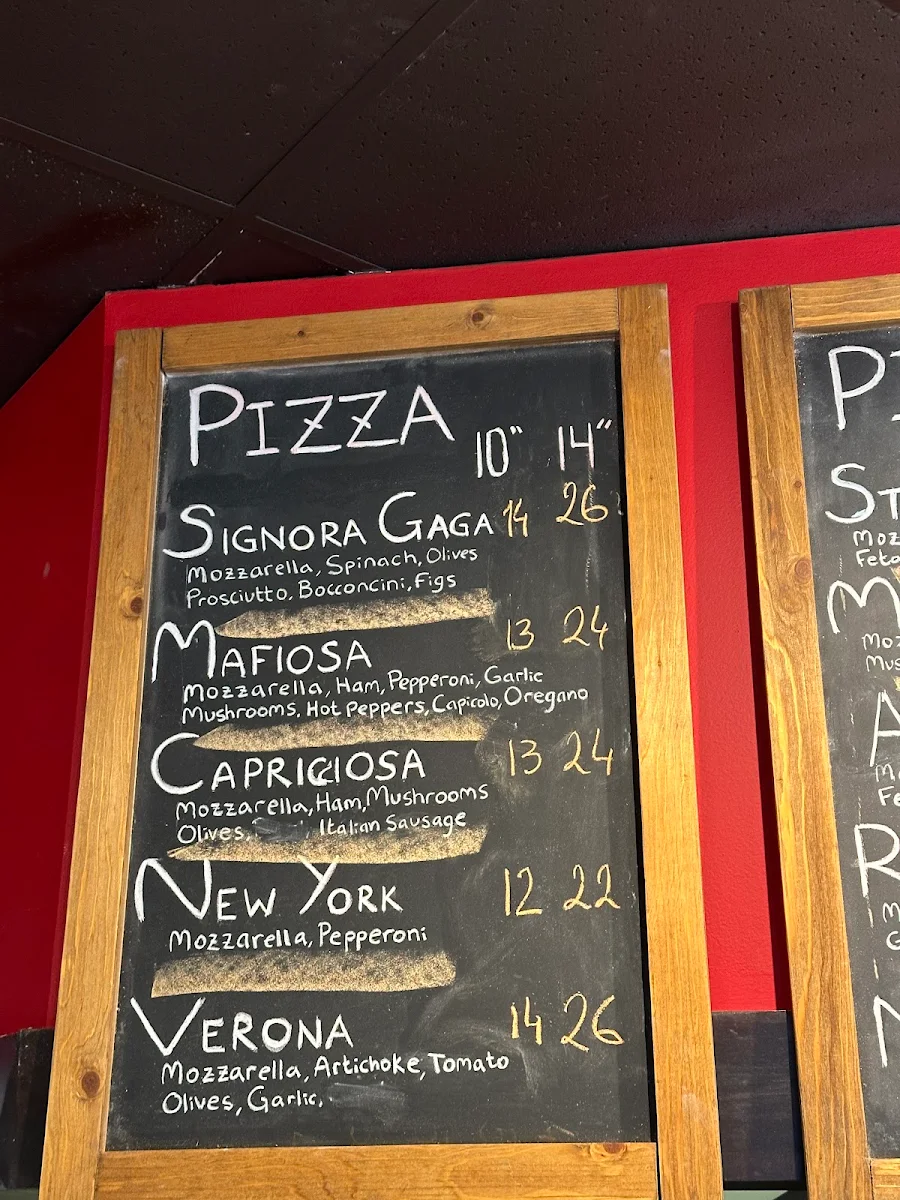 PIZZA
10" 14"
SIGNORA GAGA 14 26
Mozzarella, Spinach, Olives
Prosciutto, Bocconcini, Figs
MAFIOSA 13 24
Mozzarella, Ham, Pepperoni, Garlic
Mushrooms, Hot Peppers, Capicolo, Oregano
CAPRICIOSA 13 24
Mozzarella, Ham, Mushrooms
Olives, Italian Sausage
NEW YORK 12 22
Mozzarella, Pepperoni
VERONA 14 26
Mozzarella, Artichoke, Tomato
Olives, Garlic,